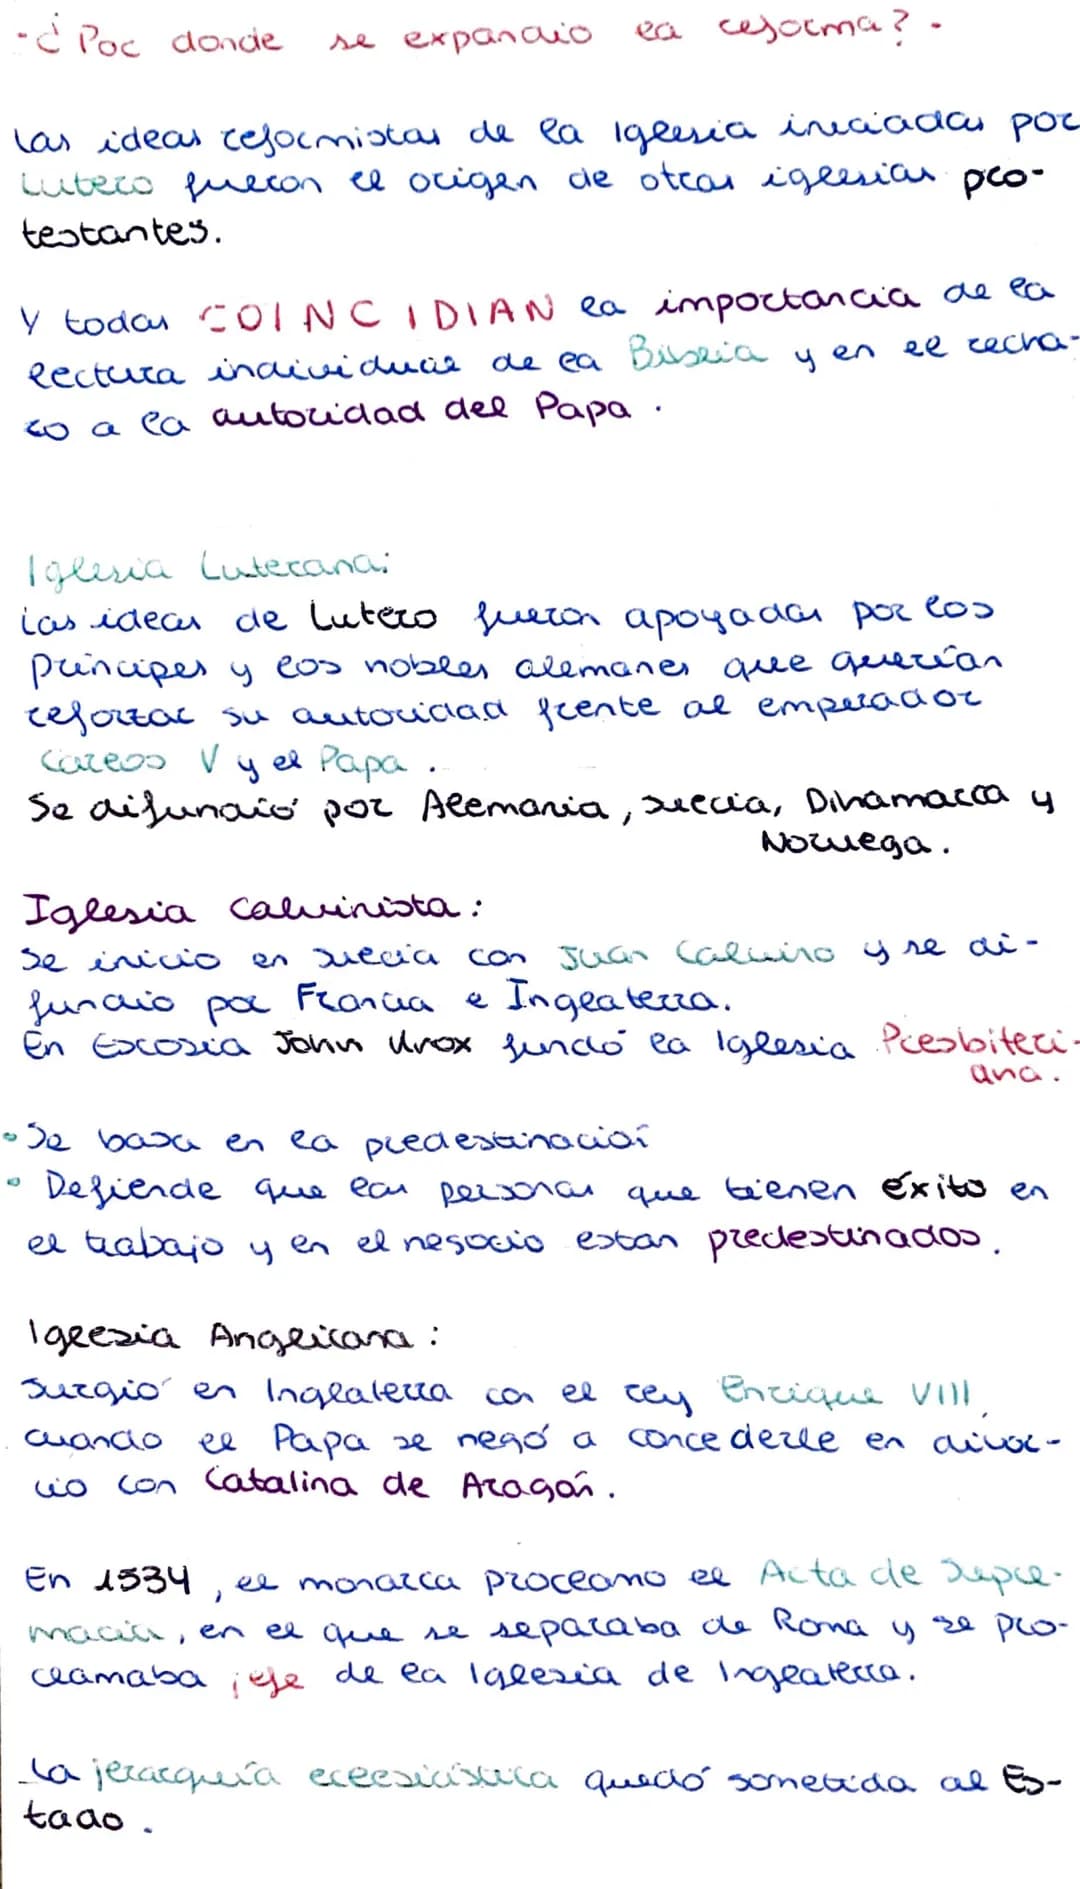 -¿Por donde se expandio la reforma?.
Las ideas reformistas de la Iglesia iniciadas por
Lutero fueron el origen de otras iglesias pro-
testantes.
Y todas COINCIDIAN la importancia de la
lectura individual de la Biblia y en el recha-
zo a la autoridad del Papa.
Iglesia Luterana:
Las ideas de Lutero fueron apoyadas por los
principes y los nobles alemanes que querían
reforzar su autoridad frente al emperador
Carlos V y el Papa.
Se difundió por Alemania, suecia, Dinamarca y
Noruega.
Iglesia Calvinista:
Se inicio en suecia con Juan Calvino y se di-
fundio por Francia e Inglaterra.
En Escosia John Knox fundó la Iglesia Presbiteri-
ana.
• Se basa en la predestinación
• Defiende que las personas que tienen éxito en
el trabajo y en el negocio estan predestinados.
Iglesia Anglicana:
Surgió en Inglaterra con el rey Enrique VIII,
cuando el Papa se negó a concederle en divor-
cio con Catalina de Aragón.
En 1534, el monarca proclamo el Acta de Supre-
macia, en el que se separaba de Roma y se pro-
clamaba jefe de la Iglesia de Inglaterra.
La jerarquía eclesiástica quedó sometida al Es-
tado.